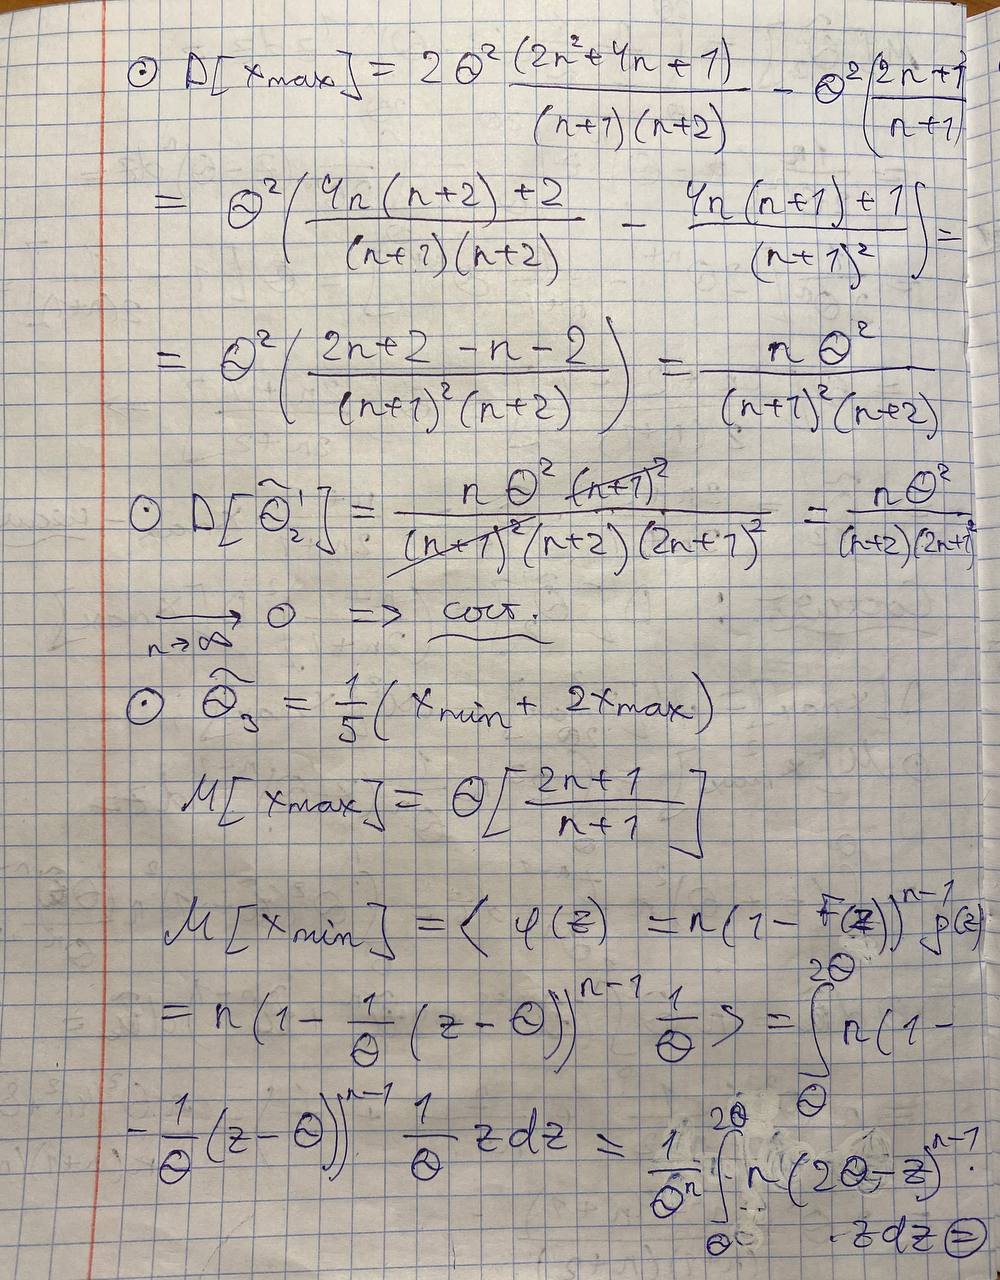 ⊙ D[x_max] = 2Θ² (2n²+4n+1)/((n+1)(n+2)) - Θ²(2n+1/n+1
= Θ²(4n(n+2)+2/(n+1)(n+2) - 4n(n+1)+1/(n+1)²) =
= Θ²(2n+2-n-2/(n+1)²(n+2)) = nΘ²/(n+1)²(n+2)
⊙ D[Θ̃₂'] = nΘ²(n+1)²/(n+1)²(n+2)(2n+1)² = nΘ²/(n+2)(2n+1)²
→ n→∞ 0 => сост.
⊙ Θ̃₃ = 1/5 (x_min + 2x_max)
M[x_max] = Θ[2n+1/n+1]
M[x_min] = < φ(z) = n(1-F(z))ⁿ⁻¹ p(z)
= n(1 - 1/Θ (z-Θ))ⁿ⁻¹ 1/Θ > = ∫_Θ^2Θ n(1-
- 1/Θ (z-Θ))ⁿ⁻¹ 1/Θ z dz = 1/Θⁿ ∫_Θ^2Θ n(2Θ-z)ⁿ⁻¹·
·z dz ⊜